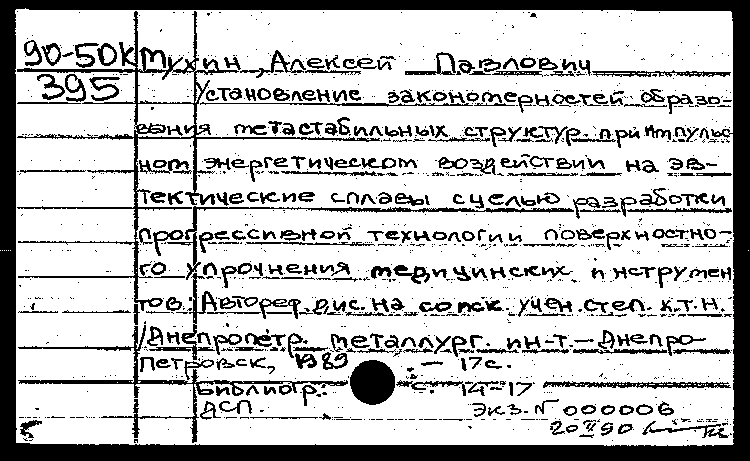 90-50к Мухин, Алексей Павлович
395
Установление закономерностей образо-
вания метастабильных структур при импульс
ном энергетическом воздействии на эв-
тектические сплавы с целью разработки
прогрессивной технологии поверхностно-
го упрочнения медицинских инструмен
тов: Автореф. дис. на соиск. учен. степ. к.т.н.
/Днепропетр. металлург. ин-т. – Днепро-
петровск, 1989. – 17с.
Библиогр.: с. 14-17
ДСП. Экз. № 000006
20 II 90
5